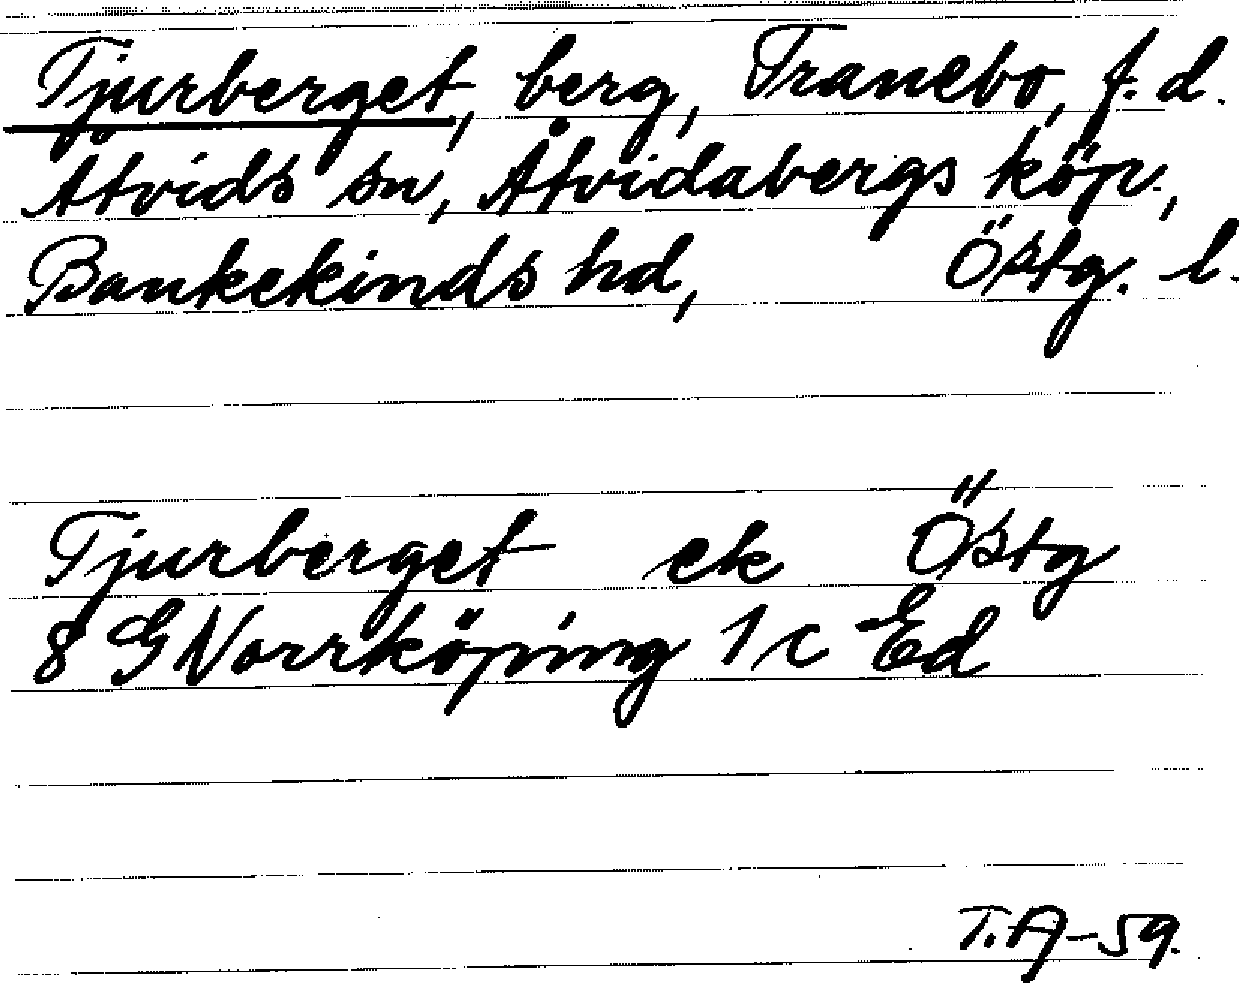 Tjurberget, berg, Tranebo, f. d.
Åtvids sn, Åtvidabergs köp.,
Bankekinds hd, Östg. l.
Tjurberget ek Östg
8 G Norrköping 1 c Ed
T.A-59.